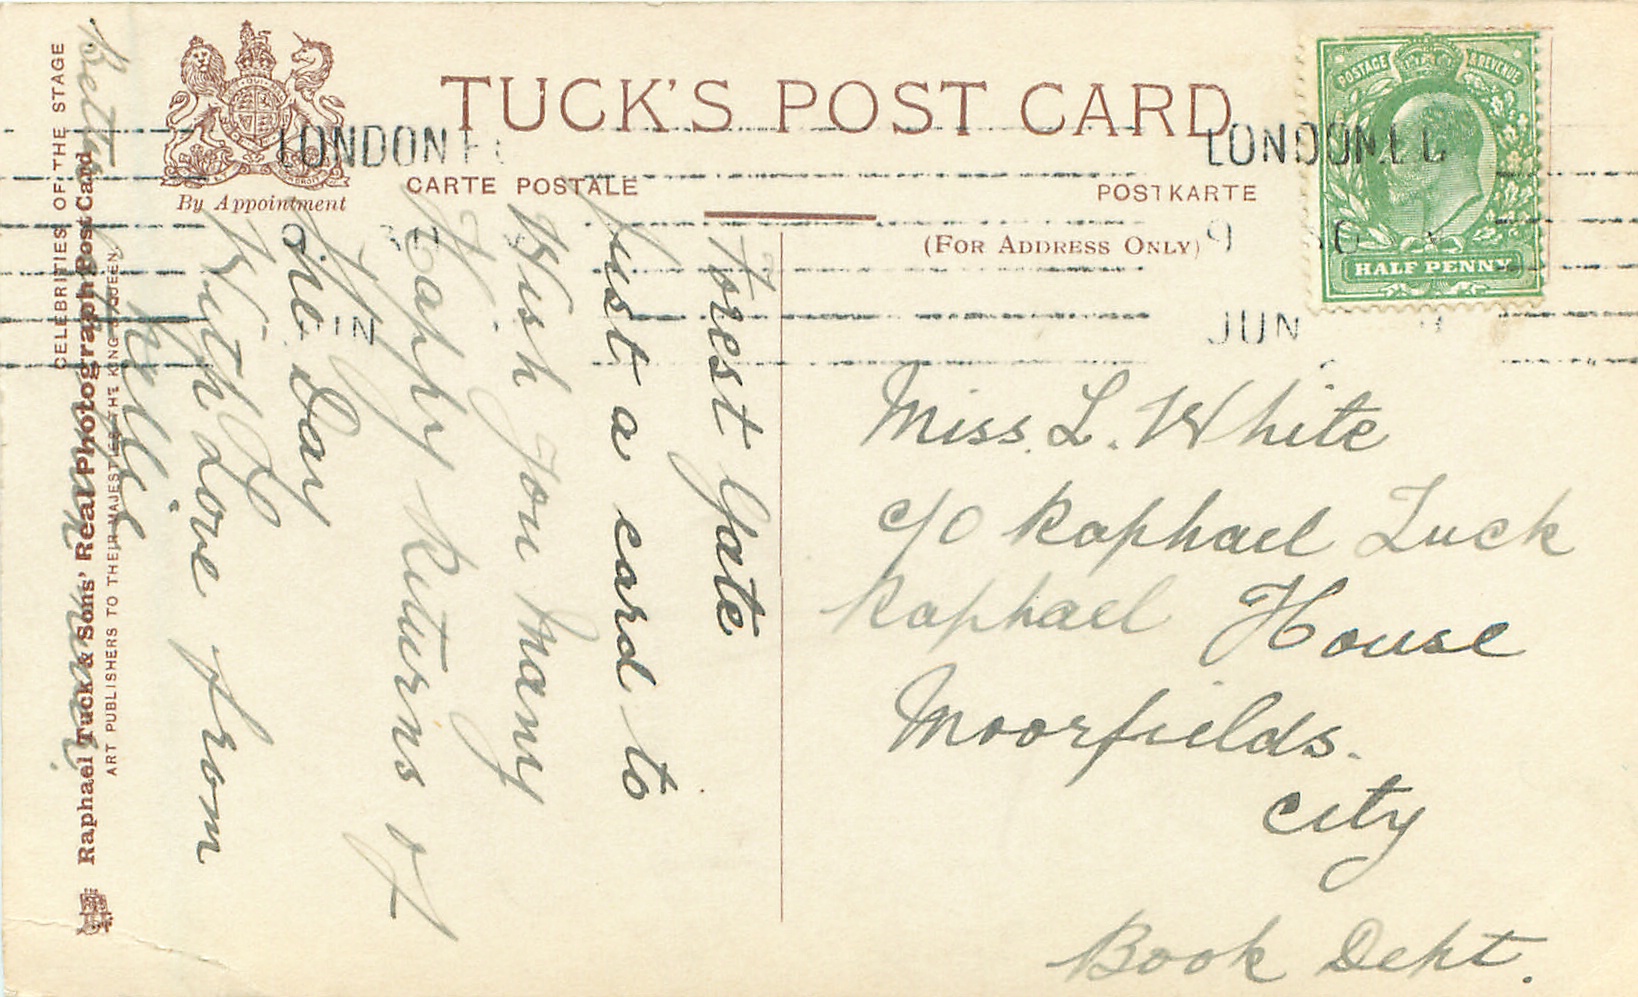 TUCK'S POST CARD
CARTE POSTALE
POSTKARTE
(FOR ADDRESS ONLY)
By Appointment
CELEBRITIES OF THE STAGE
Raphael Tuck & Sons' Real Photograph Post Card
ART PUBLISHERS TO THEIR MAJESTIES THE KING & QUEEN
POSTAGE & REVENUE
HALF PENNY
LONDON.E.C
9 30
JUN
LONDON E.C
9 30
JUN
Forest Gate
Just a card to
Wish you Many
Happy Returns of
The Day
With Love from
Nellie
Miss. L. White
c/o Raphael Tuck
Raphael House
Moorfields.
City
Book Dept.